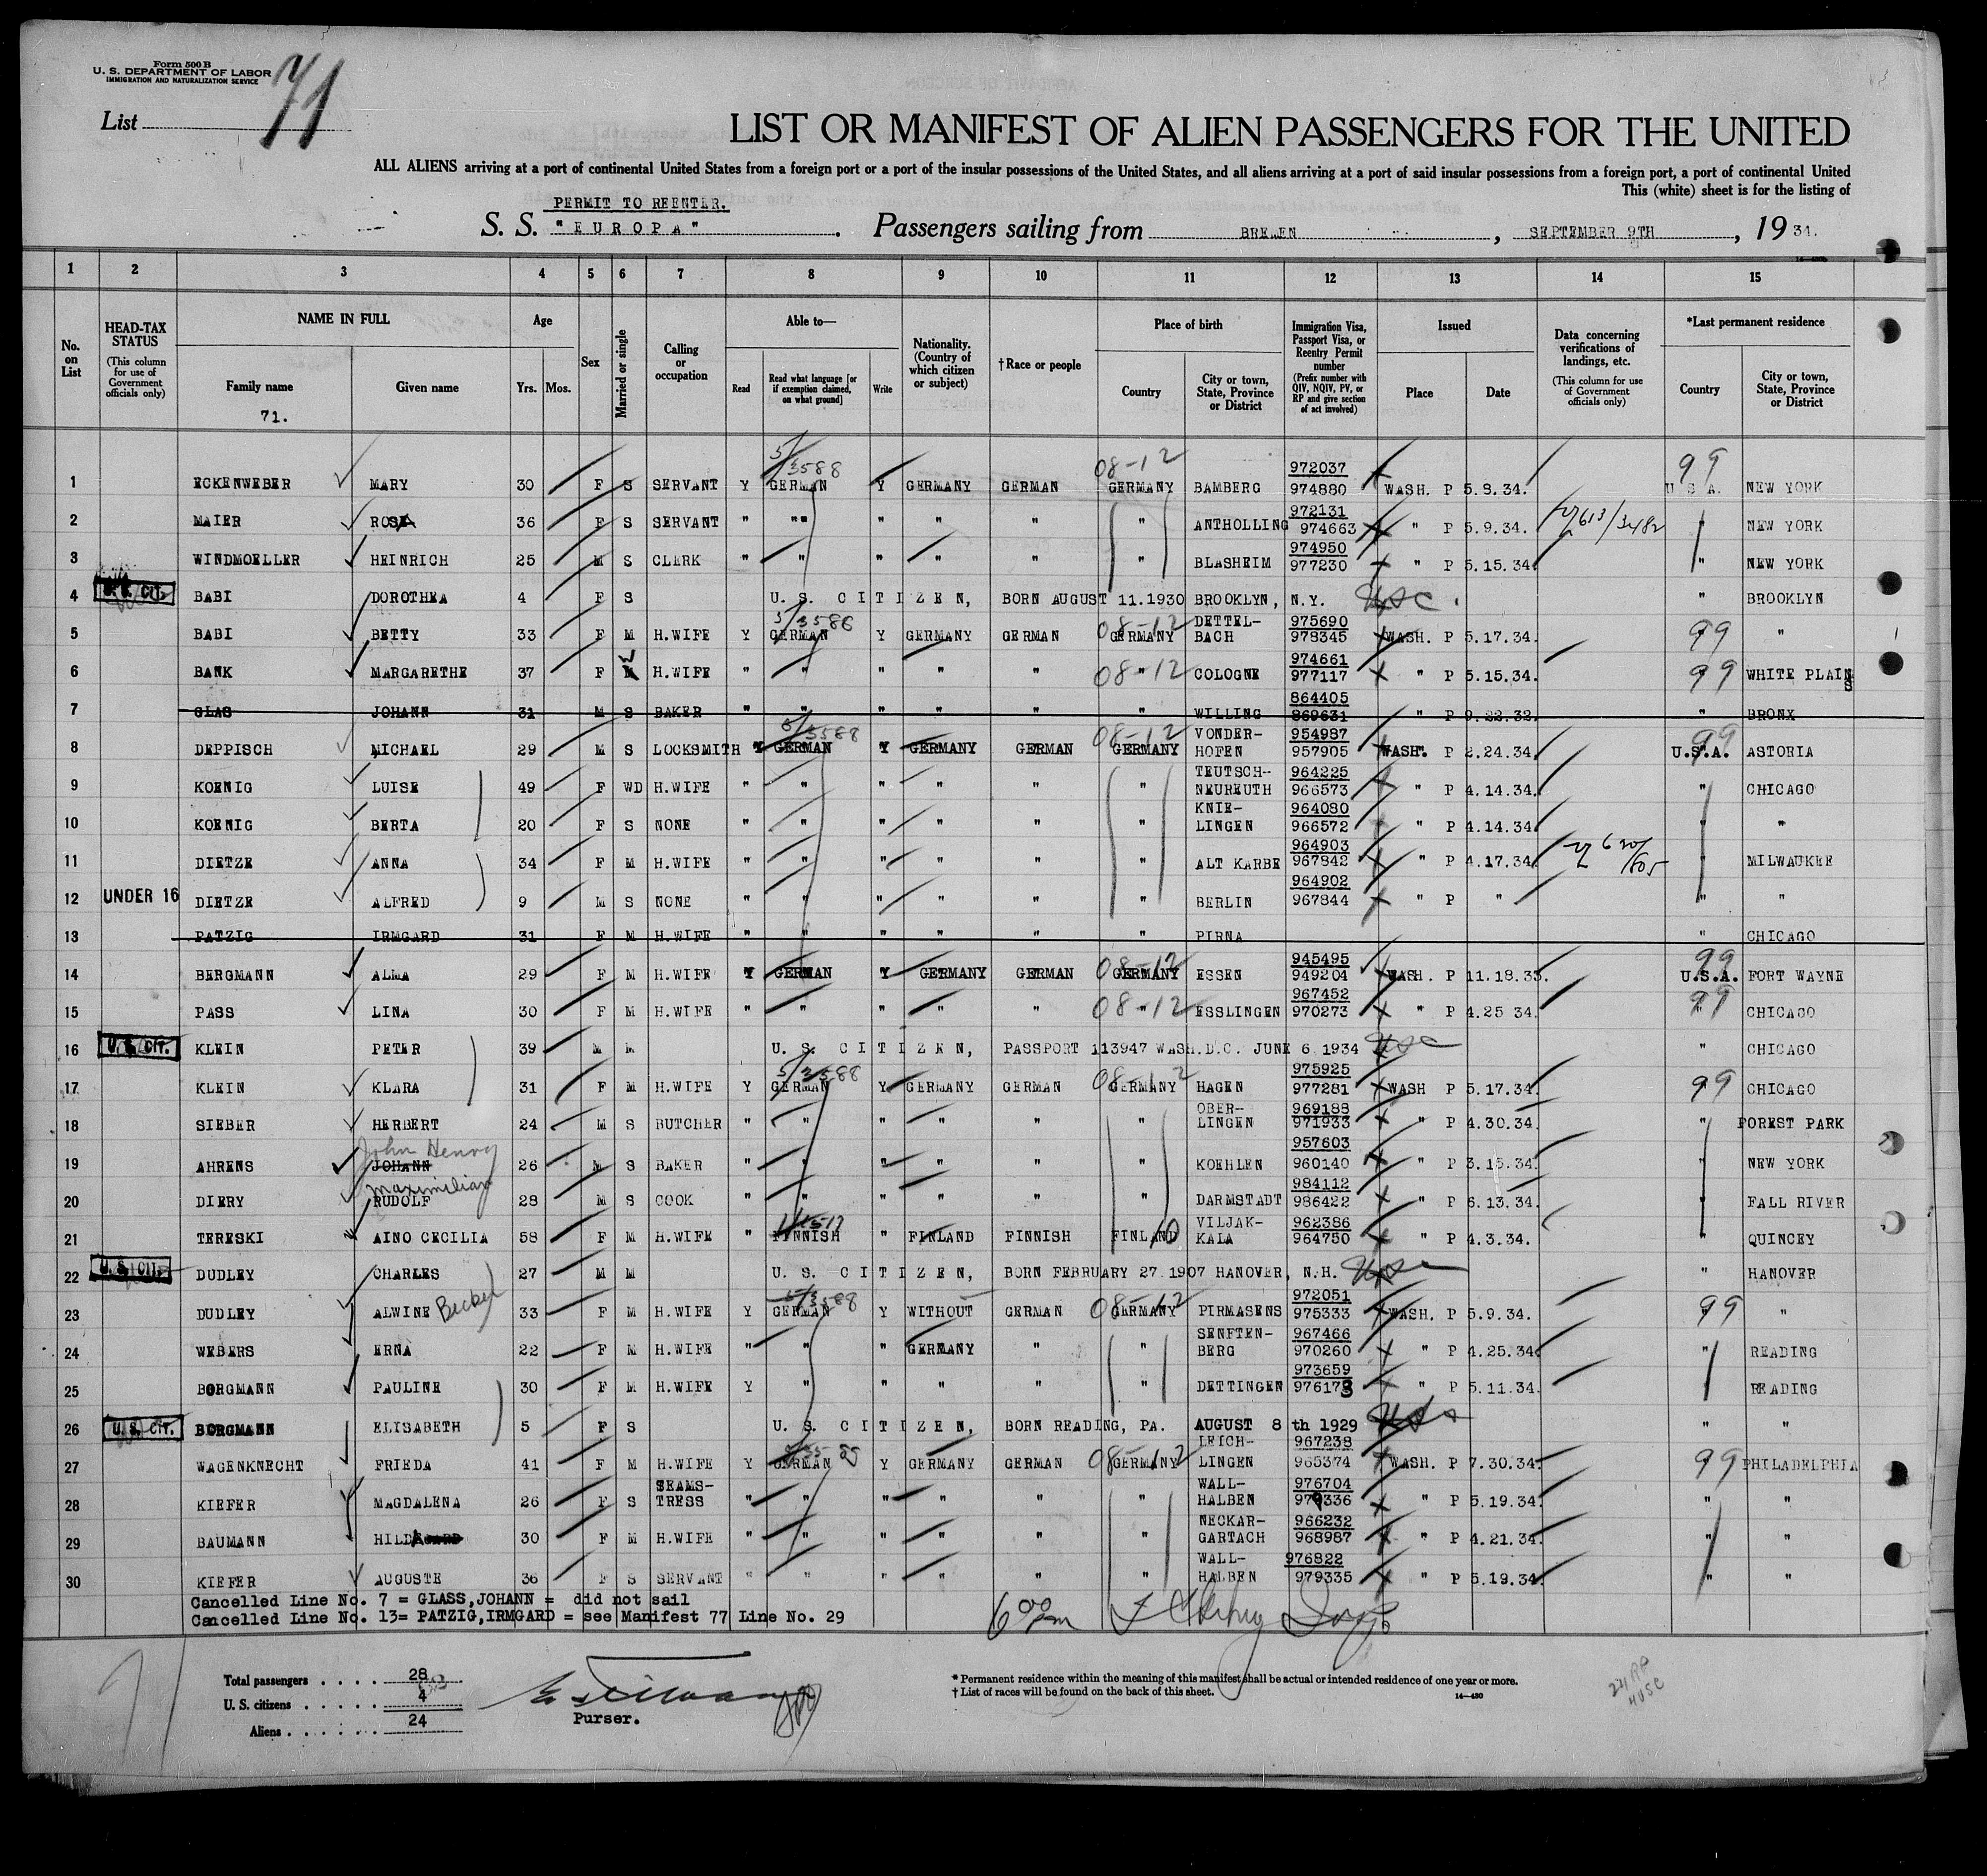 Form 500 B
U. S. DEPARTMENT OF LABOR
IMMIGRATION AND NATURALIZATION SERVICE
List 71
LIST OR MANIFEST OF ALIEN PASSENGERS FOR THE UNITED
ALL ALIENS arriving at a port of continental United States from a foreign port or a port of the insular possessions of the United States, and all aliens arriving at a port of said insular possessions from a foreign port, a port of continental United
This (white) sheet is for the listing of
PERMIT TO REENTER.
S. S. "EUROPA". Passengers sailing from BREMEN, SEPTEMBER 9TH, 1934.
1 2 3 4 5 6 7 8 9 10 11 12 13 14 15
No. on List
HEAD-TAX STATUS (This column for use of Government officials only)
NAME IN FULL Family name Given name
71.
Age Yrs. Mos.
Sex
Married or single
Calling or occupation
Able to— Read Read what language [or if exemption claimed, on what ground] Write
Nationality. (Country of which citizen or subject)
†Race or people
Place of birth Country City or town, State, Province or District
Immigration Visa, Passport Visa, or Reentry Permit number (Prefix number with QIV, NQIV, PV, or RP and give section of act involved)
Issued Place Date
Data concerning verifications of landings, etc. (This column for use of Government officials only)
*Last permanent residence Country City or town, State, Province or District
5/3588 08-12 972037 99
1 ECKENWEBER MARY 30 F S SERVANT Y GERMAN Y GERMANY GERMAN GERMANY BAMBERG 974880 WASH. P 5.9.34. U S A. NEW YORK
972131
2 MAIER ROSA 36 F S SERVANT " "" " " " " ANTHOLLING 974663 " P 5.9.34. " NEW YORK
974950
3 WINDMOELLER HEINRICH 25 M S CLERK " " " " " " BLASHEIM 977230 " P 5.15.34. " NEW YORK
4 U. S. CIT. BABI DOROTHEA 4 F S U. S. CITIZEN, BORN AUGUST 11.1930 BROOKLYN, N.Y. USC " BROOKLYN
5/3588 08-12 DETTEL- 975690
5 BABI BETTY 33 F M H.WIFE Y GERMAN Y GERMANY GERMAN GERMANY BACH 978345 WASH. P 5.17.34. 99 "
974661
6 BANK MARGARETHE 37 F M H.WIFE " " " " " 08-12 " COLOGNE 977117 " P 5.15.34. 99 WHITE PLAINS
864405
7 GLAS JOHANN 31 M S BAKER " " " " " " WILLING 869631 " P 9.22.32. " BRONX
5/3588 08-12 VONDER- 954987 99
8 DEPPISCH MICHAEL 29 M S LOCKSMITH Y GERMAN Y GERMANY GERMAN GERMANY HOFEN 957905 WASH. P 2.24.34. U.S.A. ASTORIA
TEUTSCH- 964225
9 KOENIG LUISE 49 F WD H.WIFE " " " " " " NEUREUTH 966573 " P 4.14.34. " CHICAGO
KNIE- 964080
10 KOENIG BERTA 20 F S NONE " " " " " " LINGEN 966572 " P 4.14.34 " "
964903
11 DIETZE ANNA 34 F M H.WIFE " " " " " " ALT KARBE 967842 " P 4.17.34 " MILWAUKEE
964902
12 UNDER 16 DIETZE ALFRED 9 M S NONE " " " " " " BERLIN 967844 " P " " "
13 PATZIG IRMGARD 31 F M H.WIFE " " " " " " PIRNA " CHICAGO
08-12 945495 99
14 BERGMANN ALMA 29 F M H.WIFE Y GERMAN Y GERMANY GERMAN GERMANY ESSEN 949204 WASH. P 11.18.33. U.S.A. FORT WAYNE
967452
15 PASS LINA 30 F M H.WIFE " " " " " 08-12 " ESSLINGEN 970273 " P 4.25 34. 99 CHICAGO
16 U. S. CIT. KLEIN PETER 39 M M U. S. CITIZEN, PASSPORT 113947 WASH.D.C. JUNE 6 1934 USC " CHICAGO
5/3588 08-12 975925
17 KLEIN KLARA 31 F M H.WIFE Y GERMAN Y GERMANY GERMAN GERMANY HAGEN 977281 WASH P 5.17.34. 99 CHICAGO
OBER- 969188
18 SIEBER HERBERT 24 M S BUTCHER " " " " " " LINGEN 971933 " P 4.30.34. " FOREST PARK
John Henry 957603
19 AHRENS JOHANN 26 M S BAKER " " " " " " KOEHLEN 960140 " P 3.15.34. " NEW YORK
Maximilian 984112
20 DIERY RUDOLF 28 M S COOK " " " " " " DARMSTADT 986422 " P 6.13.34. " FALL RIVER
VILJAK- 962386
21 TERESKI AINO CECILIA 58 F M H.WIFE " FINNISH " FINLAND FINNISH FINLAND KALA 964750 " P 4.3.34. " QUINCEY
22 U. S. CIT. DUDLEY CHARLES 27 M M U. S. CITIZEN, BORN FEBRUARY 27.1907 HANOVER, N.H. USC " HANOVER
5/3588 08-12 972051
23 DUDLEY ALWINE Becker 33 F M H.WIFE Y GERMAN Y WITHOUT GERMAN GERMANY PIRMASENS 975333 WASH. P 5.9.34. 99 "
SENFTEN- 967466
24 WEBERS ERNA 22 F M H.WIFE " " " GERMANY " " BERG 970260 " P 4.25.34. " READING
973659
25 BORGMANN PAULINE 30 F M H.WIFE Y " " " " " DETTINGEN 976178 " P 5.11.34. READING
26 U. S. CIT. BORGMANN ELISABETH 5 F S U. S. CITIZEN, BORN READING, PA. AUGUST 8 th 1929 " "
08-12 LEICH- 967238
27 WAGENKNECHT FRIEDA 41 F M H.WIFE Y GERMAN Y GERMANY GERMAN GERMANY LINGEN 965374 WASH. P 7.30.34. 99 PHILADELPHIA
SEAMS- WALL- 976704
28 KIEFER MAGDALENA 26 F S TRESS " " " " " " HALBEN 979336 " P 5.19.34. " "
NECKAR- 966232
29 BAUMANN HILDA 30 F M H.WIFE " " " " " " GARTACH 968987 " P 4.21.34. " "
WALL- 976822
30 KIEFER AUGUSTE 36 F S SERVANT " " " " " " HALBEN 979335 " P 5.19.34. " "
Cancelled Line No. 7 = GLASS,JOHANN = did not sail
Cancelled Line No. 13= PATZIG,IRMGARD = see Manifest 77 Line No. 29
6 00 pm
Total passengers . . . . 28
U. S. citizens . . . . . 4
Aliens . . . . . . 24
Purser.
* Permanent residence within the meaning of this manifest shall be actual or intended residence of one year or more.
† List of races will be found on the back of this sheet.
14—480
24 RP
4 USC